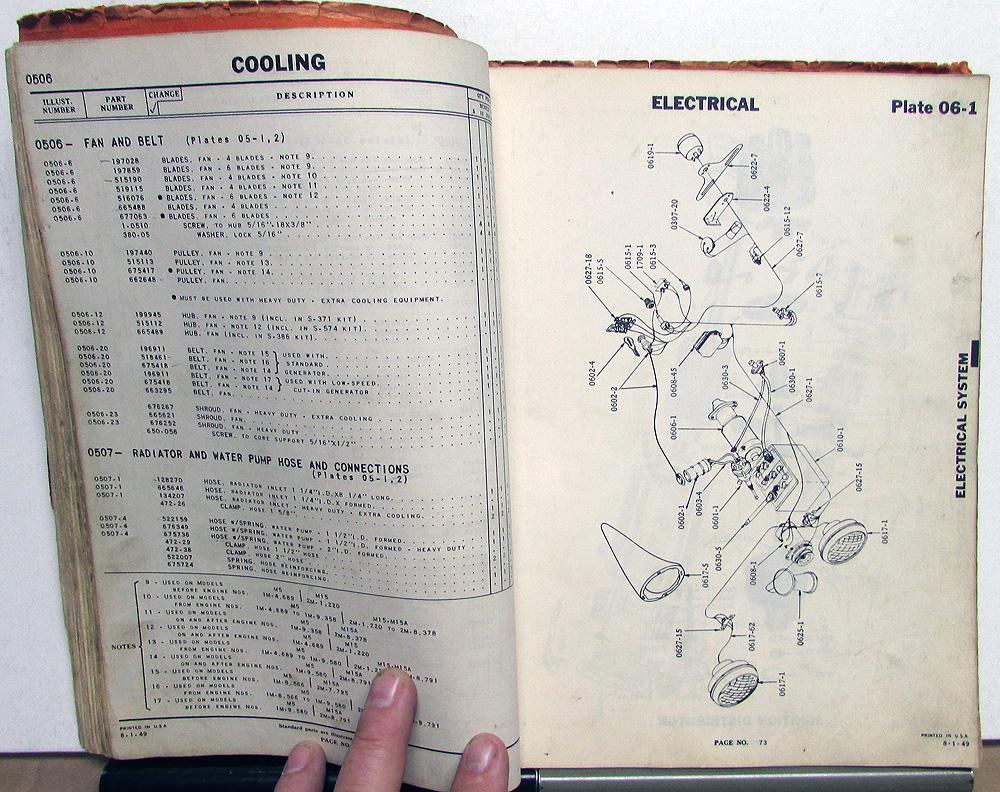 0506
COOLING
ILLUST. NUMBER PART NUMBER CHANGE √ DESCRIPTION
0506- FAN AND BELT (Plates 05-1,2)
0506-6 197028 BLADES, FAN - 4 BLADES - NOTE 9.
0506-6 197859 BLADES, FAN - 6 BLADES - NOTE 9.
0506-6 515190 BLADES, FAN - 4 BLADES - NOTE 10
0506-6 519115 BLADES, FAN - 4 BLADES - NOTE 11
0506-6 516076 ● BLADES, FAN - 6 BLADES - NOTE 12
0506-6 665488 BLADES, FAN - 4 BLADES
0506-6 677063 ● BLADES, FAN - 6 BLADES
1-0510 SCREW, TO HUB 5/16"-18X3/8"
380-05 WASHER, LOCK 5/16"
0506-10 197440 PULLEY, FAN - NOTE 9
0506-10 515113 PULLEY, FAN - NOTE 13.
0506-10 675417 ● PULLEY, FAN - NOTE 14.
0506-10 662648 PULLEY, FAN.
● MUST BE USED WITH HEAVY DUTY - EXTRA COOLING EQUIPMENT.
0506-12 199945 HUB, FAN - NOTE 9 (INCL. IN S-371 KIT)
0506-12 515112 HUB, FAN - NOTE 12 (INCL. IN S-574 KIT)
0506-12 665489 HUB, FAN (INCL. IN S-386 KIT).
0506-20 196911 BELT, FAN - NOTE 15
0506-20 518461 BELT, FAN - NOTE 16 USED WITH
0506-20 675418 BELT, FAN - NOTE 14 STANDARD
0506-20 196911 BELT, FAN - NOTE 17 GENERATOR
0506-20 675418 BELT, FAN - NOTE 14 USED WITH LOW-SPEED
0506-20 663295 BELT, FAN. CUT-IN GENERATOR
676267 SHROUD, FAN - HEAVY DUTY - EXTRA COOLING
0506-23 665621 SHROUD, FAN.
0506-23 676252 SHROUD, FAN - HEAVY DUTY
650-058 SCREW, TO CORE SUPPORT 5/16"X1/2"
0507- RADIATOR AND WATER PUMP HOSE AND CONNECTIONS
(Plates 05-1,2)
0507-1 128270 HOSE, RADIATOR INLET 1 1/4"I.D.X8 1/4" LONG.
0507-1 665648 HOSE, RADIATOR INLET 1 1/4"I.D.X FORMED.
0507-1 134207 HOSE, RADIATOR INLET - HEAVY DUTY - EXTRA COOLING.
472-26 CLAMP, HOSE 1 5/8".
0507-4 522159 HOSE W/SPRING, WATER PUMP
0507-4 676349 HOSE W/SPRING, WATER PUMP - 1 1/2"I.D. FORMED.
0507-4 675736 HOSE W/SPRING, WATER PUMP - 2"I.D. FORMED - HEAVY DUTY
472-29 CLAMP, HOSE 1 1/2" HOSE
472-38 CLAMP, HOSE 2" HOSE
522007 SPRING, HOSE REINFORCING.
675724 SPRING, HOSE REINFORCING
NOTES
9 - USED ON MODELS M5 M15
BEFORE ENGINE NOS. 1M-4,689 2M-1,220
10 - USED ON MODELS M5 M15-M15A
FROM ENGINE NOS. 1M-4,689 TO 1M-9,358 2M-1,220 TO 2M-8,378
11 - USED ON MODELS M5 M15A
ON AND AFTER ENGINE NOS. 1M-9,358 2M-8,378
12 - USED ON MODELS M5 M15
ON AND AFTER ENGINE NOS. 1M-4,689 2M-1,220
13 - USED ON MODELS M5 M15-M15A
FROM ENGINE NOS. 1M-4,689 TO 1M-9,580
14 - USED ON MODELS M5 M15A
ON AND AFTER ENGINE NOS. 1M-9,580 2M-8,791
15 - USED ON MODELS M5 M15
BEFORE ENGINE NOS. 1M-8,566 2M-7,795
16 - USED ON MODELS M5
FROM ENGINE NOS. 1M-8,566 TO 1M-9,580
17 - USED ON MODELS M5
BEFORE ENGINE NOS. 1M-9,580 2M-8,791
PRINTED IN U.S.A.
8-1-49
Standard parts are illustrated
PAGE NO.
ELECTRICAL
Plate 06-1
0619-1
0622-7
0622-4
0307-20
0615-12
0627-7
0627-18
0615-5
0615-1
1709-1
0615-3
0615-7
0602-4
0602-2
0608-45
0630-3
0607-1
0630-1
0627-1
0606-1
0610-1
0602-1
0603-4
0601-1
0627-15
0630-5
0617-5
0608-1
0617-1
0625-1
0627-15
0617-62
0617-1
ELECTRICAL SYSTEM
PAGE NO. 73
PRINTED IN U.S.A.
8-1-49